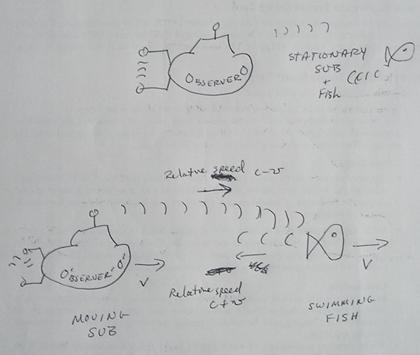 OBSERVER O
STATIONARY
SUB
+
Fish
Relative speed c-v
O"BSERVER-O"
V
V
Relative speed
c+v
MOVING
SUB
SWIMMING
FISH